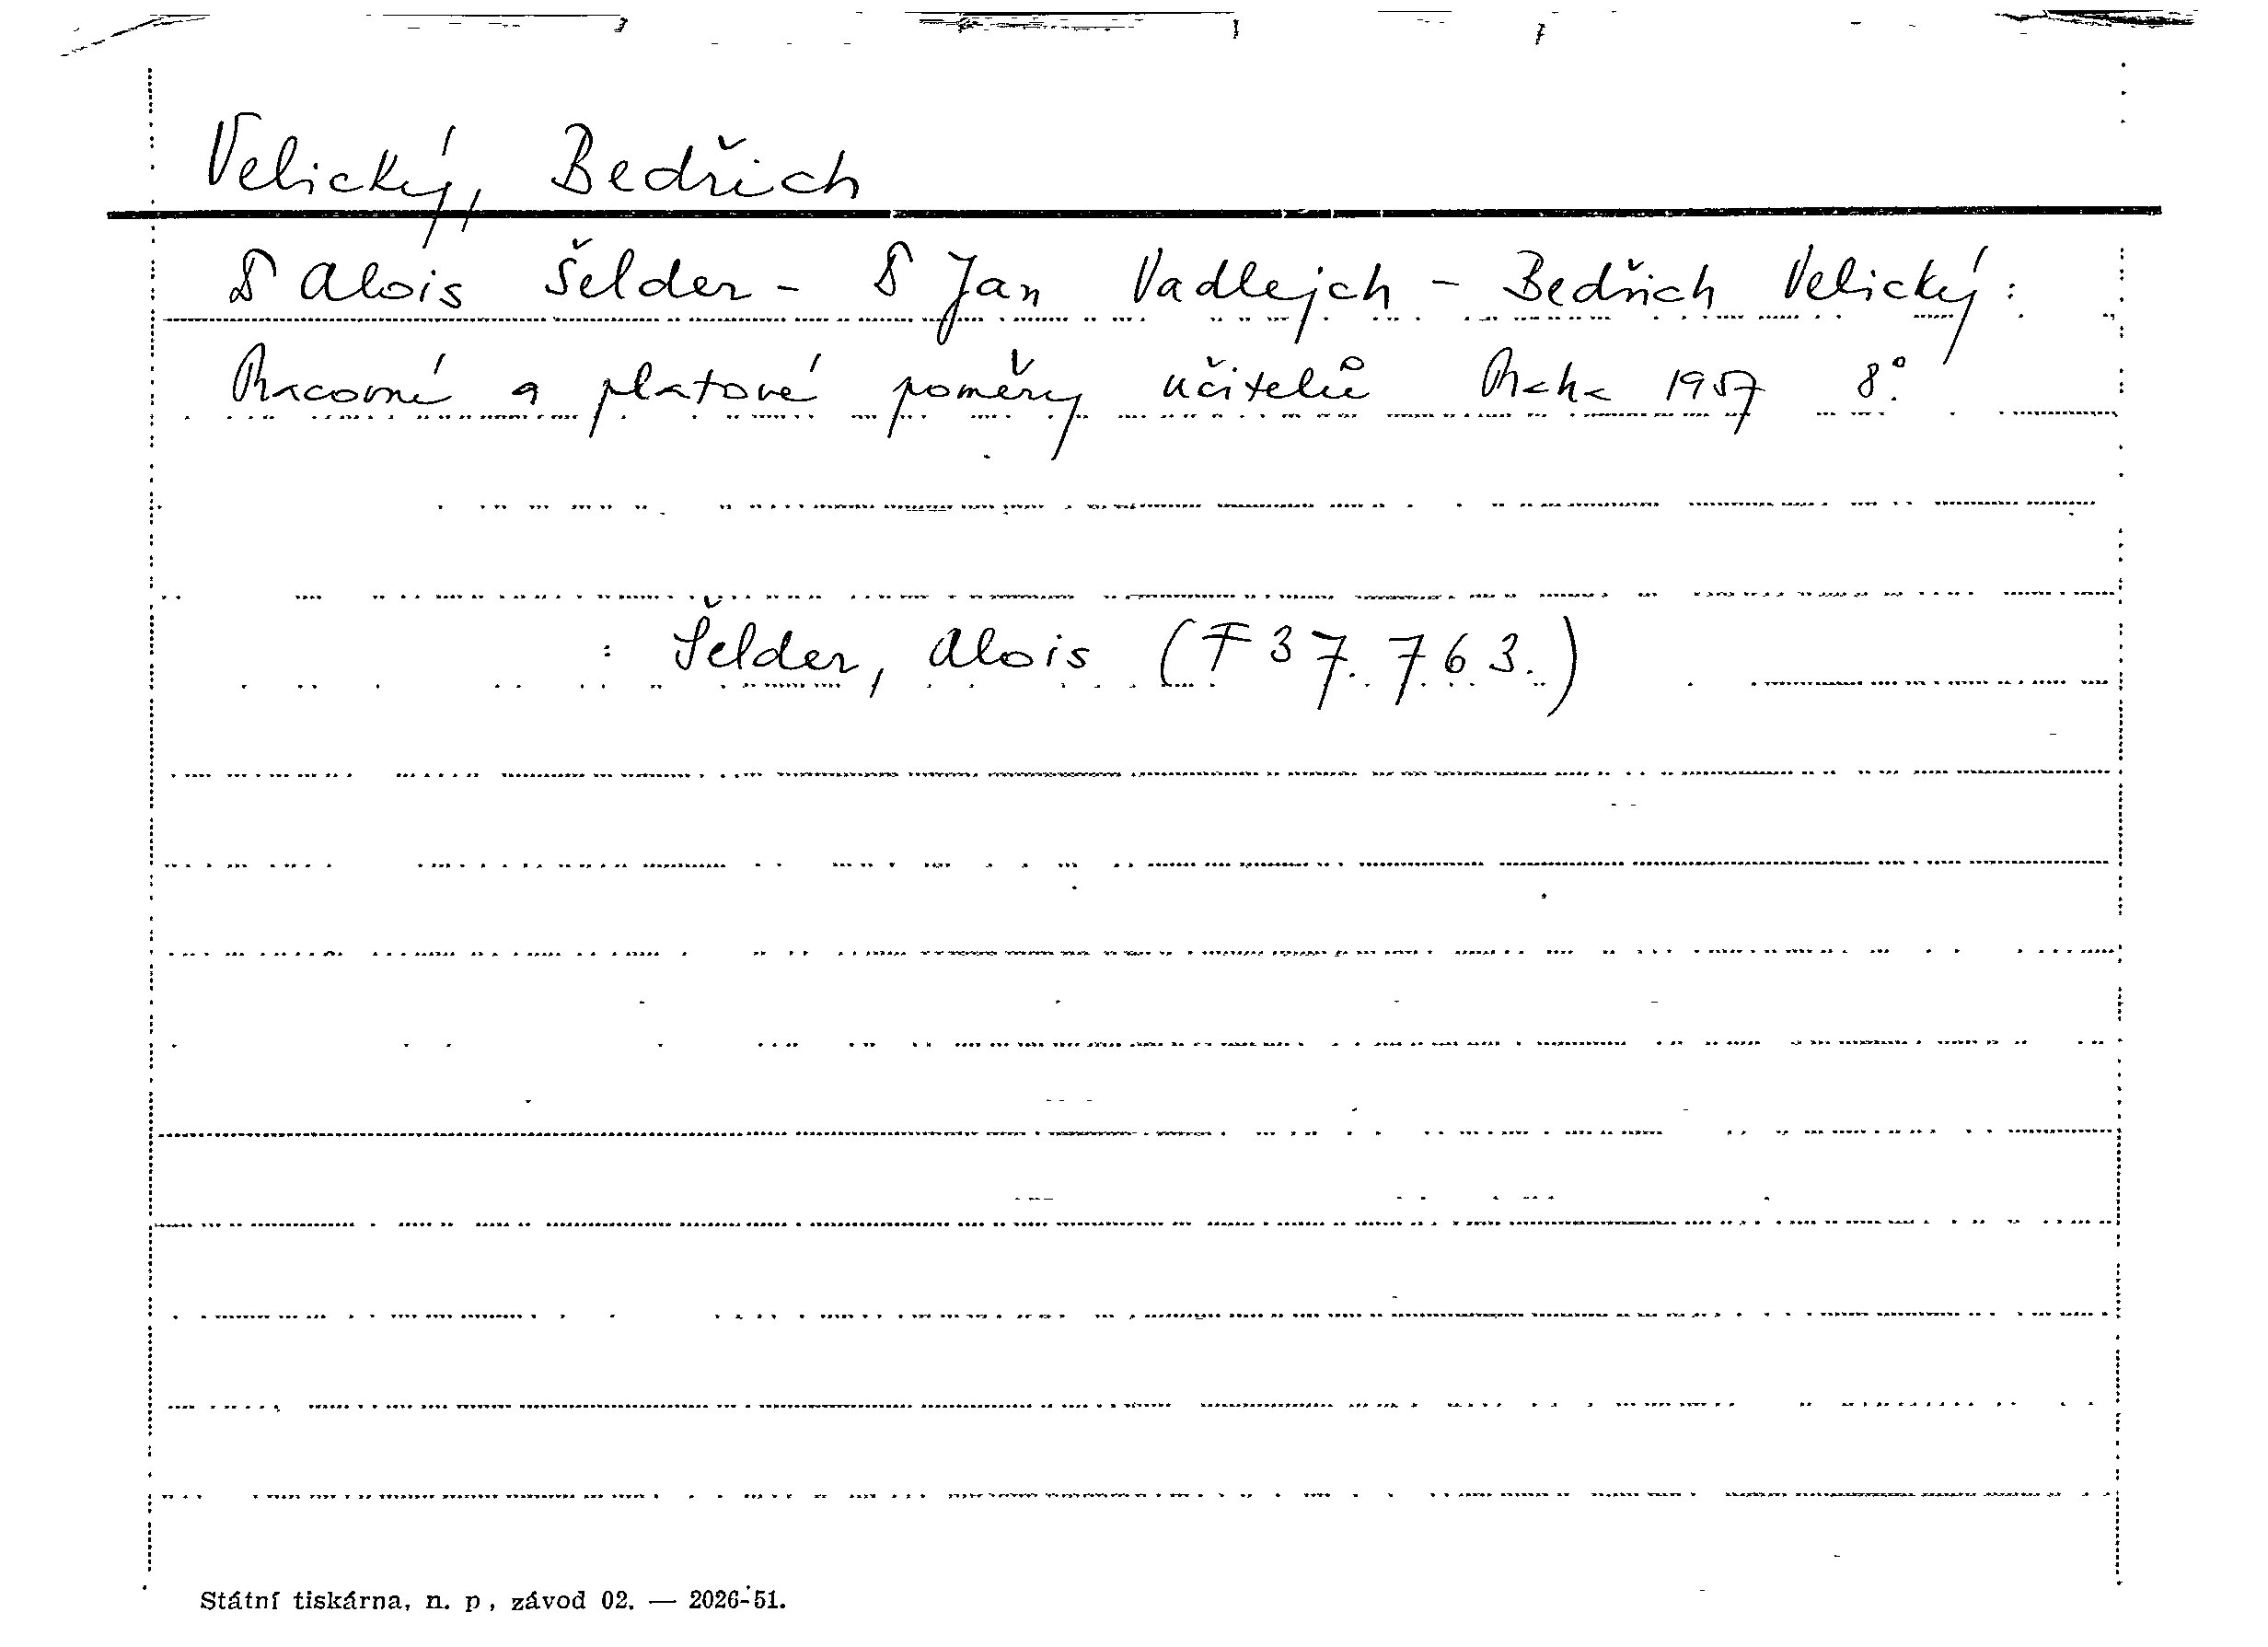 Velický, Bedřich
Alois Šelder - Jan Vadlejch - Bedřich Velický:
Pracovní a platové poměry učitelů Praha 1957 8°.
: Šelder, Alois (F 37.763.)
Státní tiskárna, n. p., závod 02. — 2026-51.